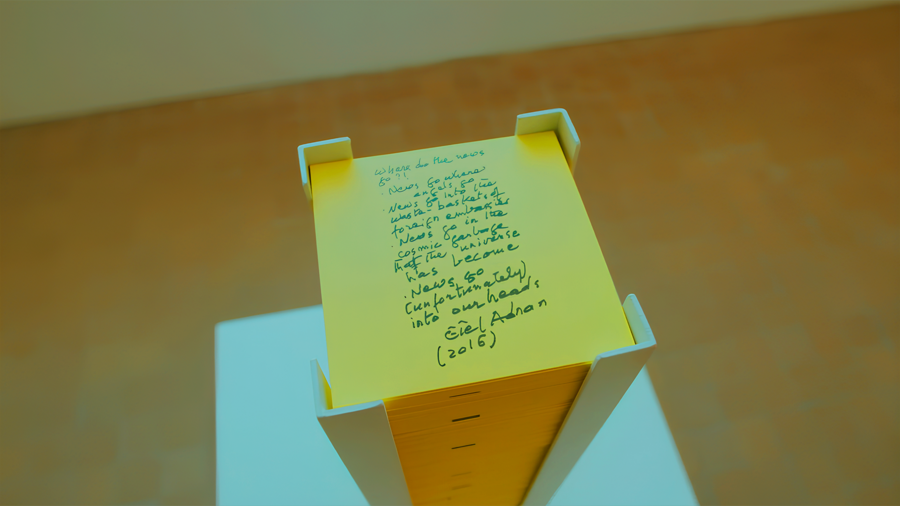 where do the news
go?!
. News go where
angels go –
. News go into the
waste-baskets of
foreign embassies
. News go in the
cosmic garbage
that the universe
has become
. News go
(unfortunately)
into our heads
Etel Adnan
(2016)